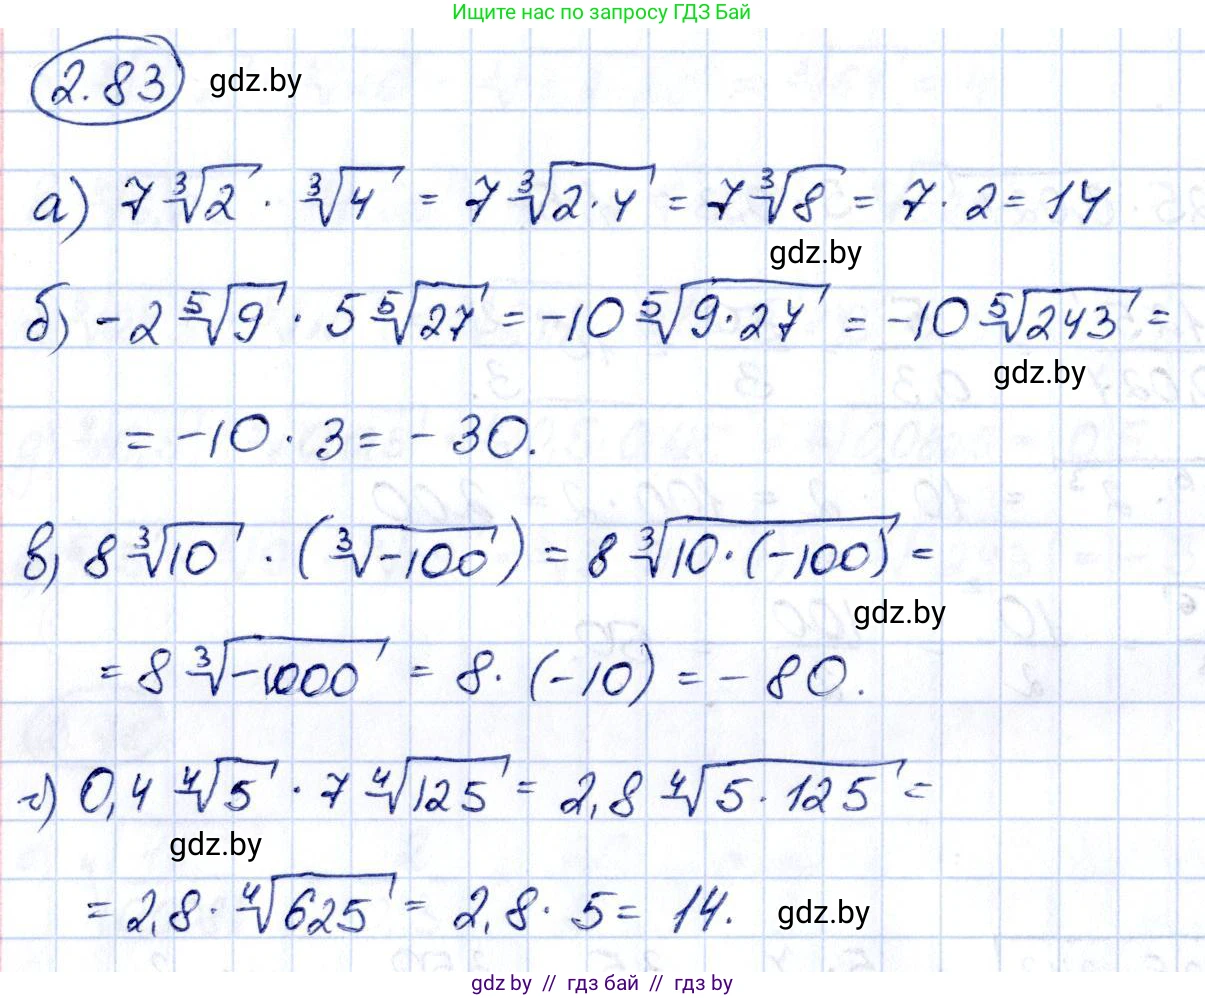 Ищите нас по запросу ГДЗ Бай
2.83 gdz.by
а) 7∛2 · ∛4 = 7∛(2·4) = 7∛8 = 7·2 = 14
gdz.by
б) -2 ⁵√9 · 5 ⁵√27 = -10 ⁵√(9·27) = -10 ⁵√243 =
gdz.by
= -10·3 = -30.
в) 8∛10 · (∛-100) = 8∛(10·(-100)) =
gdz.by
= 8∛-1000 = 8·(-10) = -80.
г) 0,4 ∜5 · 7 ∜125 = 2,8 ∜(5·125) =
gdz.by
= 2,8·∜625 = 2,8·5 = 14. gdz.by
gdz.by // гдз бай // gdz.by